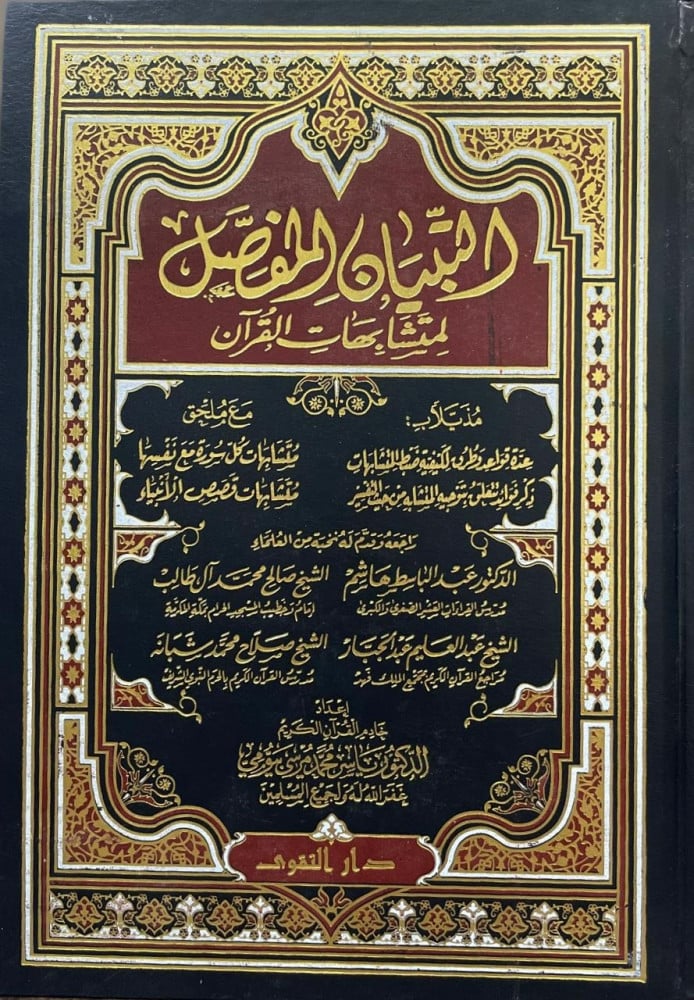 التبيان المفصل
لمتشابهات القرآن
مذيلا ب: مع ملحق
عدة قواعد وطرق لكيفية ضبط المتشابهات متشابهات كل سورة مع نفسها
ذكر فوائد تتعلق بتوجيه المتشابه من حيث التفسير متشابهات قصص الأنبياء
راجعه وقدم له نخبة من العلماء
الدكتور عبد الباسط هاشم الشيخ صالح محمد آل طالب
مدرس القراءات العشر الصغرى والكبرى إمام وخطيب المسجد الحرام بمكة المكرمة
الشيخ عبد العليم عبد الجبار الشيخ صلاح محمد شمانه
مراجع القرآن الكريم بمجمع الملك فهد مدرس القرآن الكريم بالحرم النبوي الشريف
إعداد
خادم القرآن الكريم
الدكتور ياسر محمد مرسي بيومي
غفر الله له ولجميع المسلمين
دار التقوى